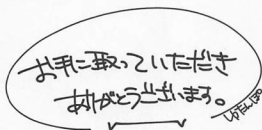 お手に取っていただき
ありがとうございます。
ゆたんぽ